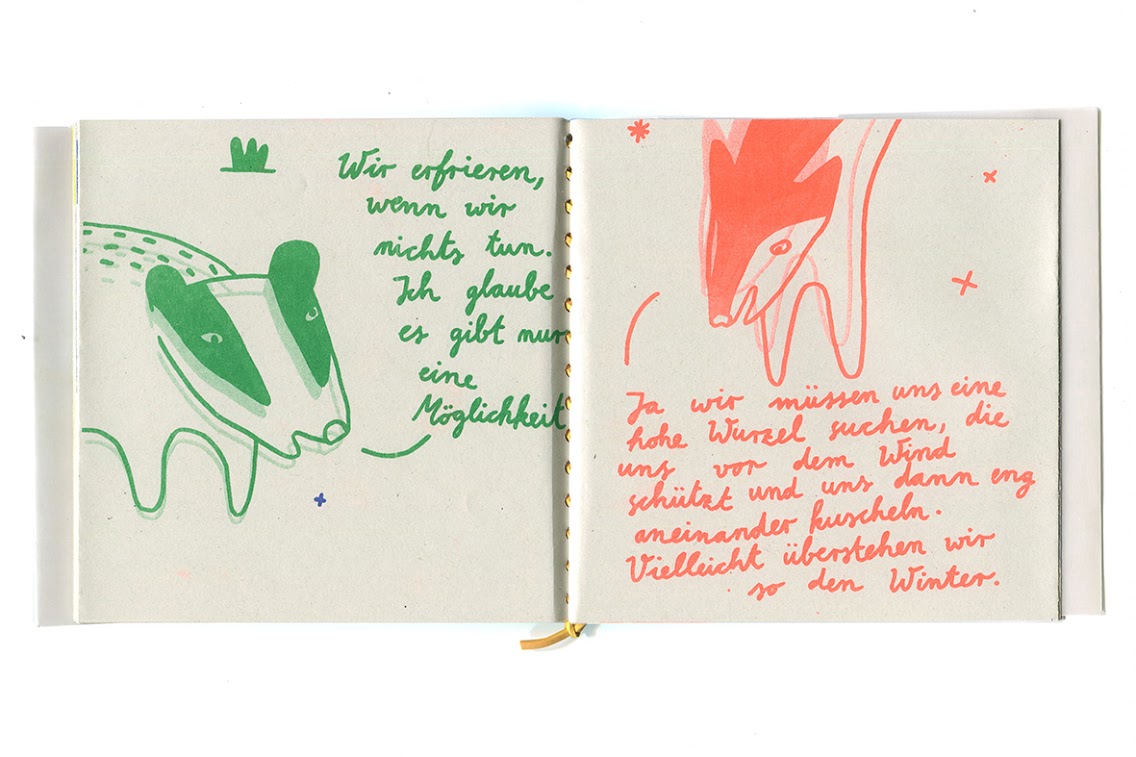 Wir erfrieren,
wenn wir
nichts tun.
Ich glaube
es gibt nur
eine
Möglichkeit
Ja wir müssen uns eine
hohe Wurzel suchen, die
uns vor dem Wind
schützt und uns dann eng
aneinander kuscheln.
Vielleicht überstehen wir
so den Winter.